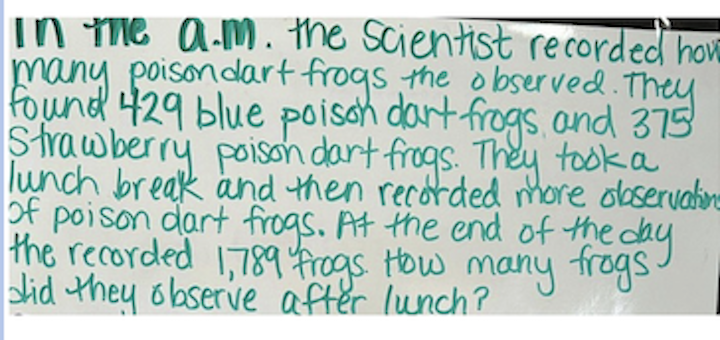 In the a.m. the Scientist recorded how
many poison dart frogs the observed. They
found 429 blue poison dart frogs, and 375
Strawberry poison dart frogs. They took a
lunch break and then recorded more observations
of poison dart frogs. At the end of the day
the recorded 1,789 frogs. How many frogs
did they observe after lunch?